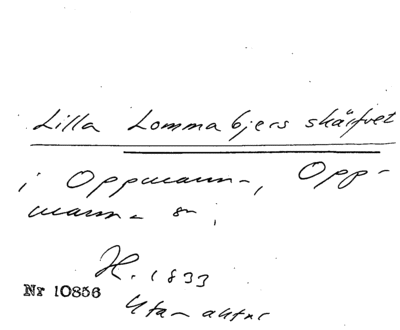 Lilla Lommabjers skärfvet
i Oppmanna, Opp-
manna sn,
H. 1833
Nr 10856
Utan aktnr